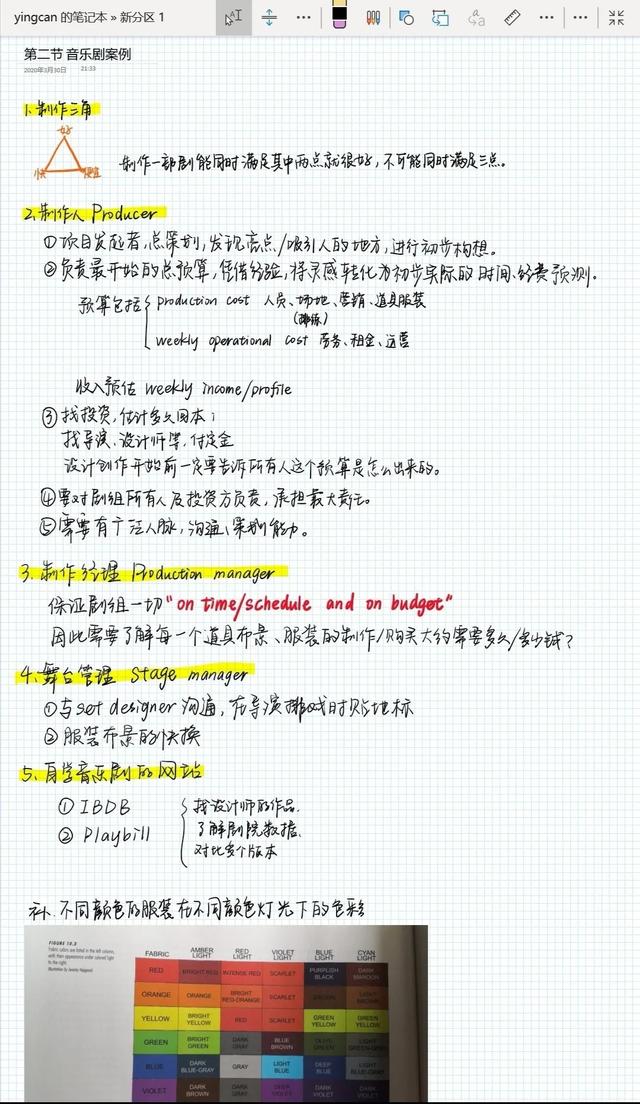 yingcan 的笔记本 » 新分区 1
第二节 音乐剧案例
2020年3月30日 21:33
1.制作三角
好
快 便宜
制作一部剧能同时满足其中两点就很好,不可能同时满足三点。
2.制作人 Producer
①项目发起者,总策划,发现亮点/吸引人的地方,进行初步构想。
②负责最开始的总预算,凭借经验,将灵感转化为初步实际的时间、经费预测。
预算包括 production cost 人员、场地、营销、道具服装
(排练)
weekly operational cost 劳务、租金、运营
收入预估 weekly income/profile
③找投资,估计多久回本;
找导演、设计师等,付定金
设计创作开始前一定要告诉所有人这个预算是怎么出来的。
④要对剧组所有人及投资方负责,承担最大责任。
⑤需要有广泛人脉,沟通、策划能力。
3.制作经理 Production manager
保证剧组一切"on time/schedule and on budget"
因此需要了解每一个道具布景、服装的制作/购买大约需要多久/多少钱?
4.舞台管理 Stage manager
①与set designer 沟通,在导演排戏时贴地标
②服装布景的快换
5.自学音乐剧的网站
①IBDB
②Playbill
找设计师的作品.
了解剧院数据.
对比多个版本
补.不同颜色的服装在不同颜色灯光下的色彩
FIGURE 10.3
FABRIC AMBER LIGHT RED LIGHT VIOLET LIGHT BLUE LIGHT CYAN LIGHT
RED BRIGHT RED INTENSE RED SCARLET PURPLISH BLACK DARK MAROON
ORANGE ORANGE BRIGHT RED-ORANGE SCARLET LIGHT BROWN
YELLOW BRIGHT YELLOW RED SCARLET GREEN YELLOW GREEN YELLOW
GREEN BRIGHT GREEN DARK GRAY BLUE BROWN OLIVE GREEN LIGHT GREEN-GRAY
BLUE DARK BLUE-GRAY GRAY LIGHT BLUE DEEP BLUE LIGHT BLUE-GRAY
VIOLET DARK BROWN DARK GRAY DEEP VIOLET DARK VIOLET DARK VIOLET